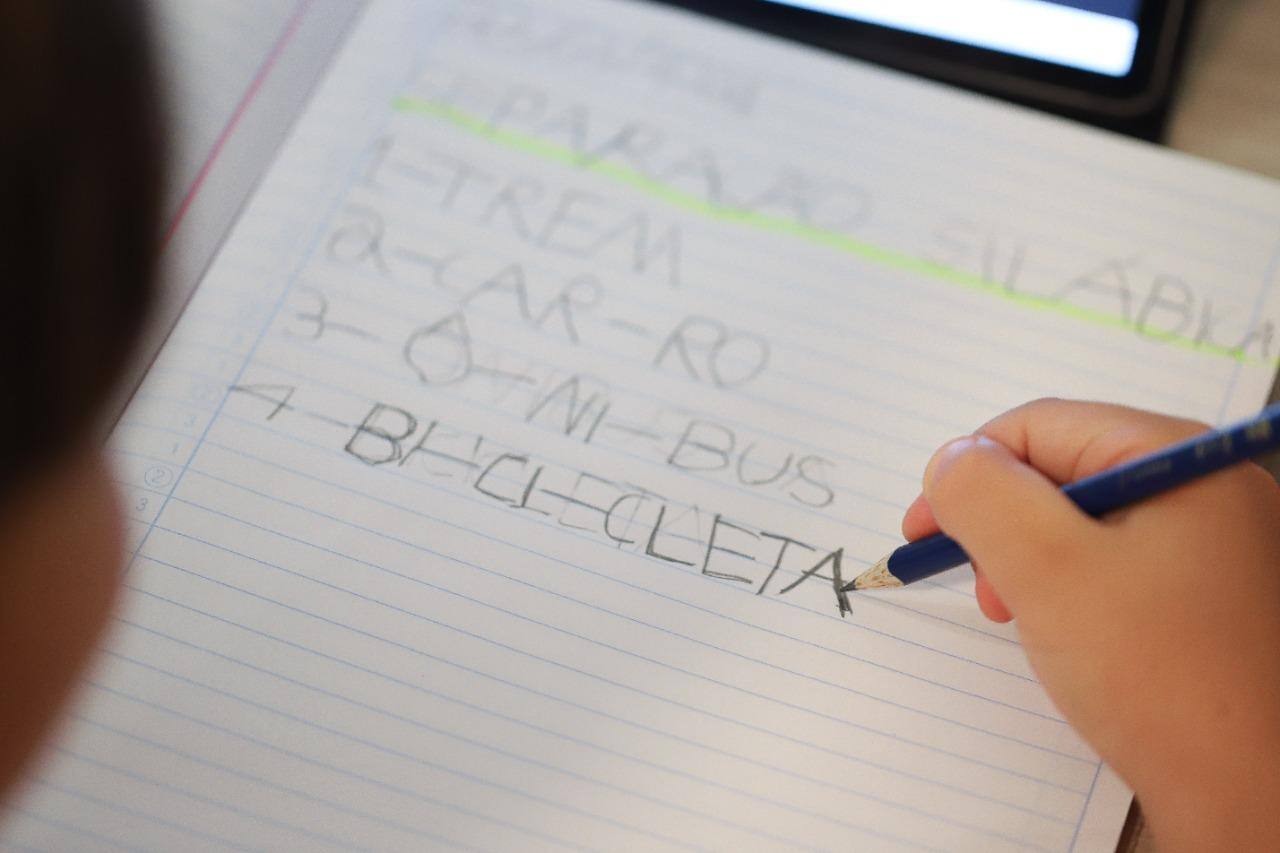 SILÁBICA
1-TREM
2-CAR-RO
3-Ô-NI-BUS
4-BI-CI-CLETA